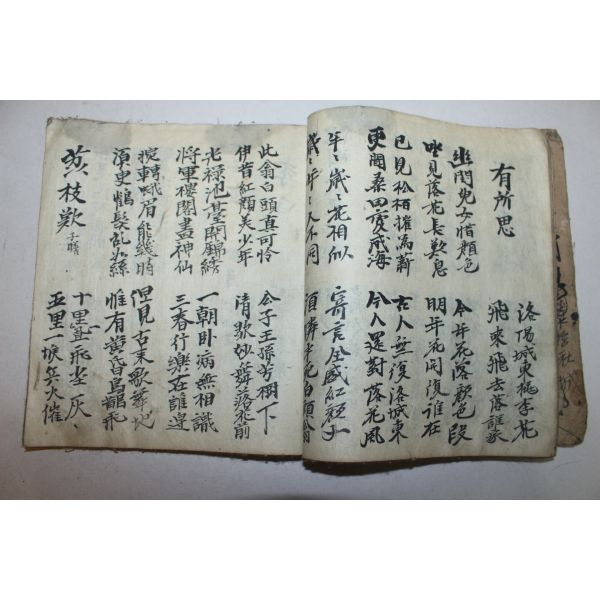 有所思
洛陽城東桃李花
飛來飛去落誰家
幽閨兒女惜顔色
今年花落顔色改
坐見落花長歎息
明年花開復誰在
已見松栢摧爲薪
古人無復洛城東
更聞桑田變成海
今人還對落花風
年ゝ歲ゝ花相似
寄言全盛紅顔子
歲ゝ年ゝ人不同
須憐半死白頭翁
此翁白頭真可怜
公子王孫芳樹下
伊昔紅顔美少年
清歌妙舞落花前
光祿池臺開錦綉
一朝卧病無相識
將軍樓閣畫神仙
三春行樂在誰邊
捥轉蛾眉能幾時
但見古來歌舞地
須臾鶴髮亂如絲
惟有黃昏鳥雀飛
荔枝歎 子瞻
十里置飛尘灰ゝ
五里一堠兵火催